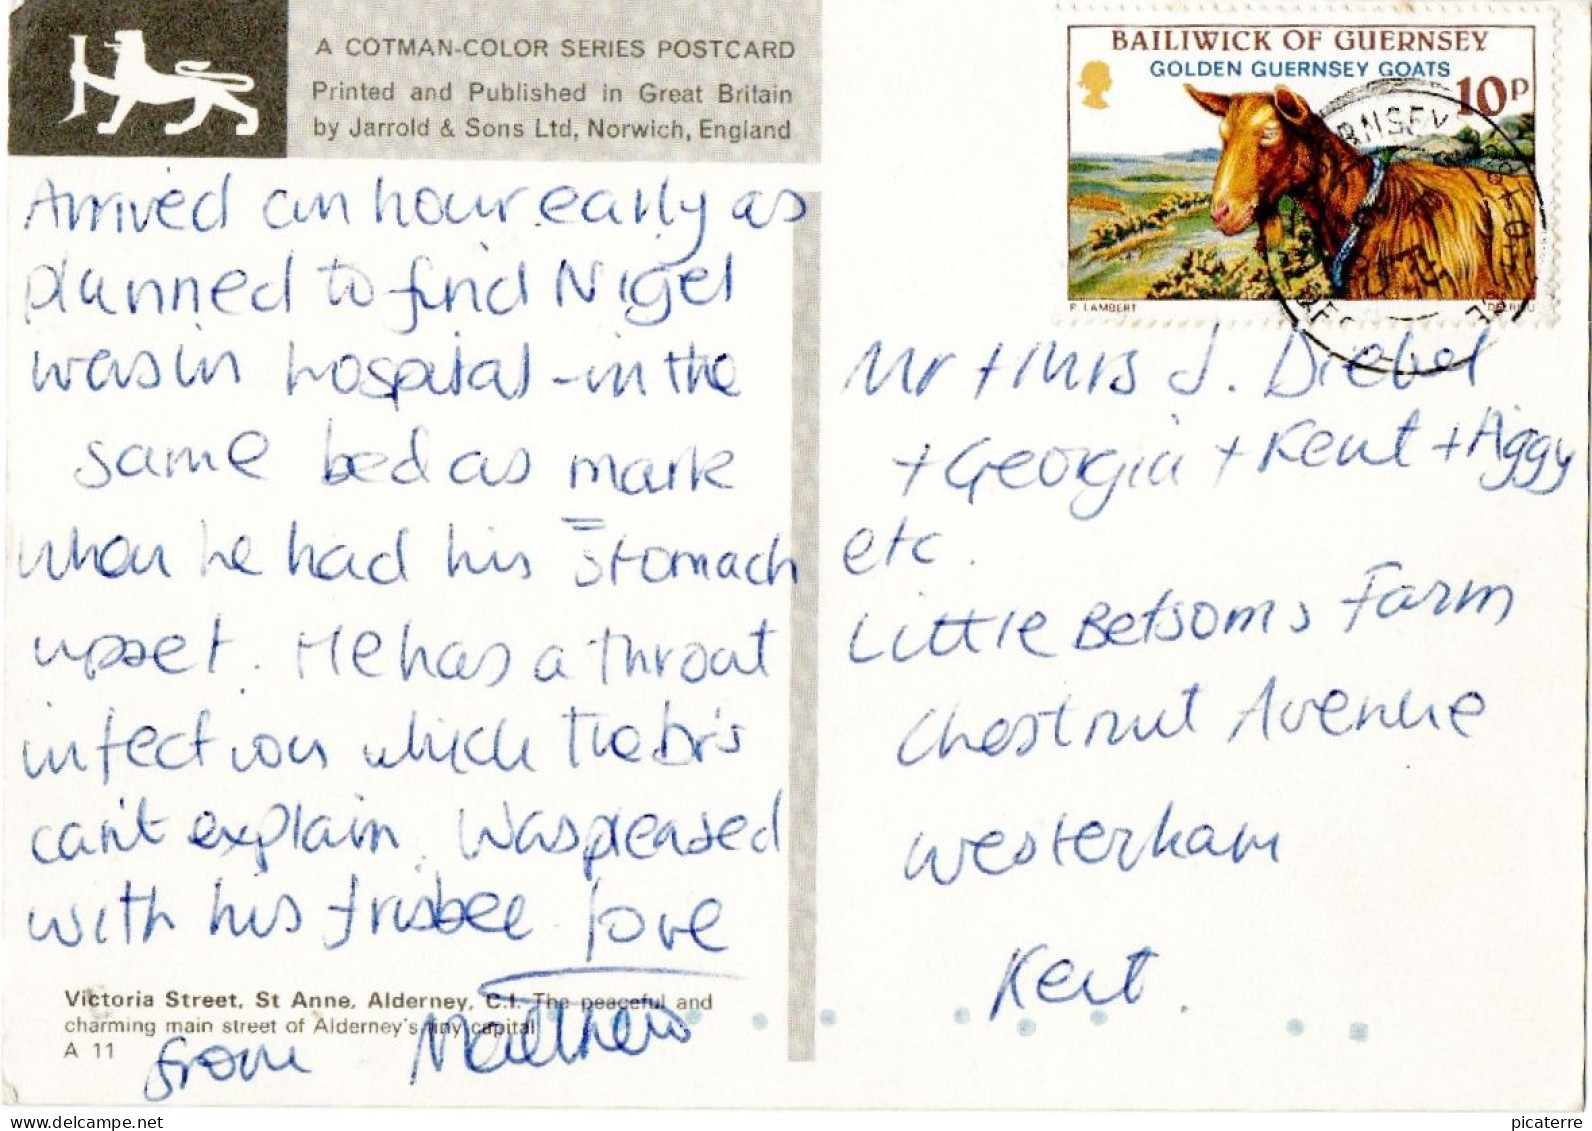 A COTMAN-COLOR SERIES POSTCARD
Printed and Published in Great Britain
by Jarrold & Sons Ltd, Norwich, England
Arrived an hour early as
planned to find Nigel
was in hospital - in the
same bed as mark
when he had his stomach
upset. He has a throat
infection which the Dr's
can't explain. Was pleased
with his frisbee love
Victoria Street, St Anne, Alderney, C.I. The peaceful and
charming main street of Alderney's tiny capital
A 11
from Matthew
BAILIWICK OF GUERNSEY
GOLDEN GUERNSEY GOATS
10P
P. LAMBERT
Mr + Mrs J. Diebel
+ Georgia + Kent + Aggy
etc.
Little Betsoms Farm
Chestnut Avenue
Westerham
Kent.
picaterre